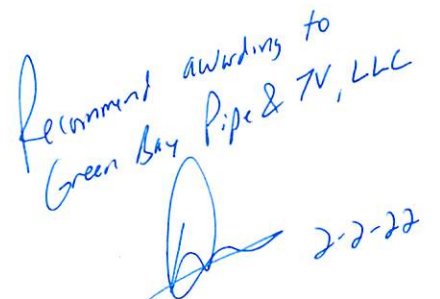 Recommend awarding to
Green Bay Pipe & TV, LLC
2-2-22